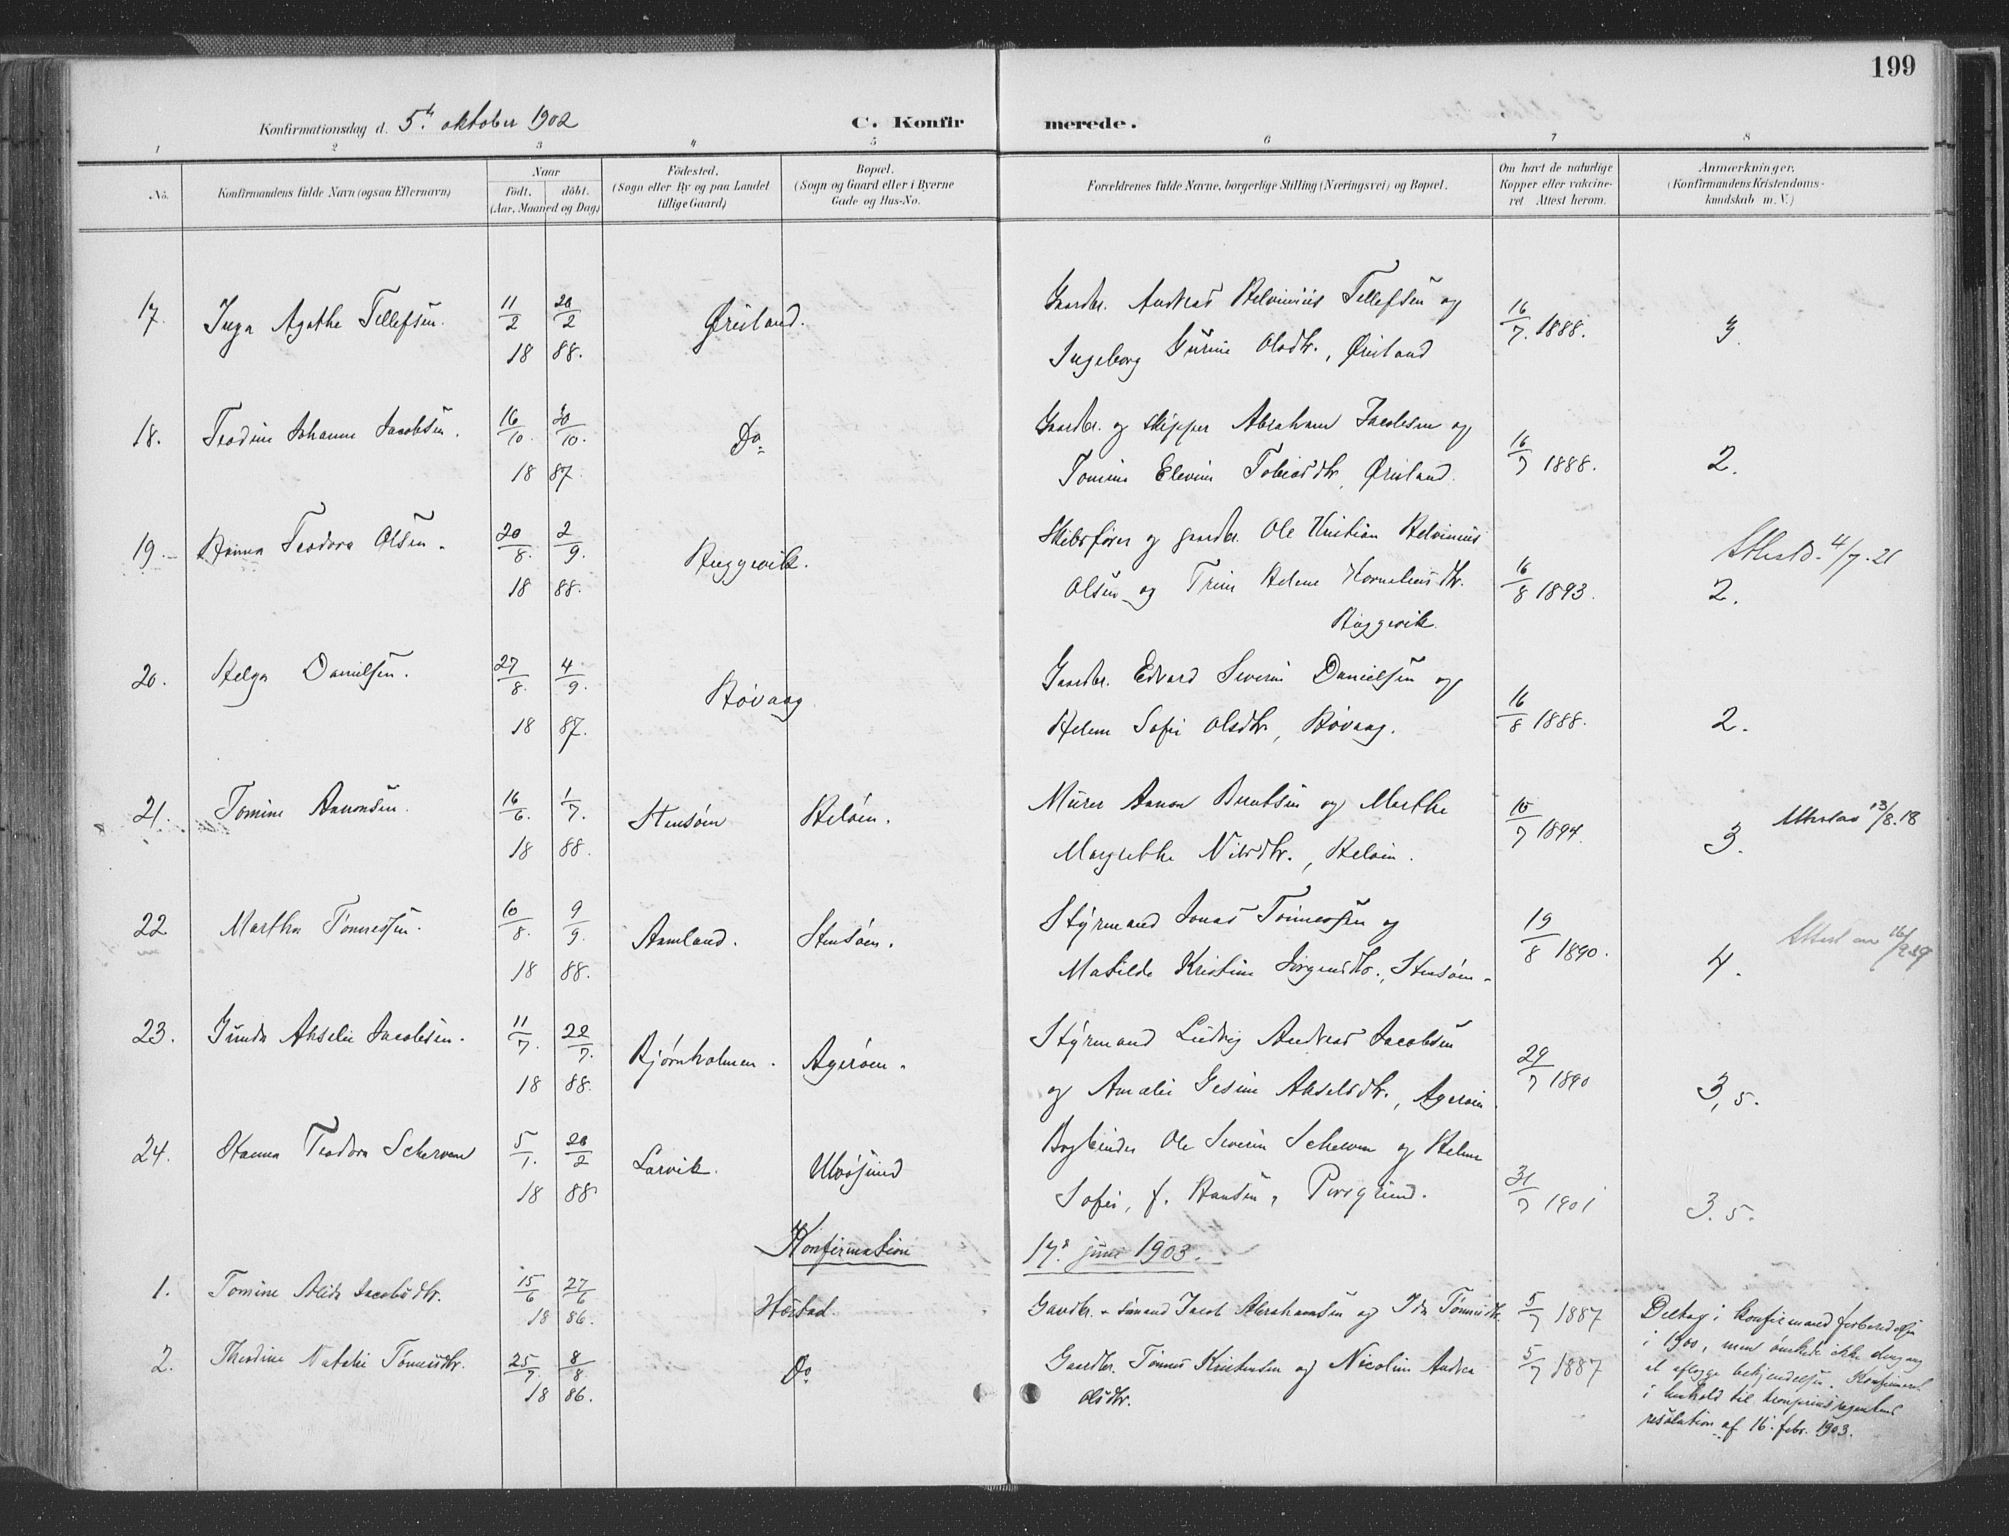 199
Konfirmationsdag d. 5t oktober 1902 C. Konfirmerede.
1 2 3 4 5 6 7 8
No. Konfirmandens fulde Navn (ogsaa Efternavn) Naar født. døbt. (Aar, Maaned og Dag) Födested. (Sogn eller By og paa Landet tillige Gaard) Bopæl. (Sogn og Gaard eller i Byerne Gade og Hus-No. Forældrenes fulde Navne, borgerlige Stilling (Næringsvei) og Bopæl. Om havt de naturlige Kopper eller vakcineret Attest herom. Anmærkninger. (Konfirmandens Kristendomskundskab m. V.)
17. Inga Agathe Tellefsen. 11/2 20/2 Ørisland. Gaardbr. Andreas Helvinius Tellefsen og 16/7 1888. 3.
18 88. Ingeborg Gurine Olsdtr., Ørisland
18. Teodine Johanne Jacobsen. 16/10. 30/10. Do Gaardbr. og skipper Abraham Jacobsen og 16/7 1888. 2.
18 87. Tomine Elevine Tobiasdtr, Ørisland.
19. Hanna Teodora Olsen. 20/8. 2/9. Hæggevik. Skibsfører og gaardbr. Ole Kristian Helvinius Attest d. 4/7.21
18 88. Olsen og Trine Helene Korneliusdtr. 16/8 1893. 2.
Hæggevik.
20. Helga Danielsen. 27/8. 4/9. Høvaag Gaardbr. Edvard Severin Danielsen og
18 87. Helene Sofie Olsdtr, Høvaag. 16/8 1888. 2.
21. Tomine Aanonsen. 16/6. 1/7. Stensøen Heløen. Murer Aanon Berntsen og Marthe 10/7 1894. 3. 13/8.18
18 88. Margrethe Nilsdtr., Heløen.
22 Martha Tønnessen. 10/8. 9/9. Aamland. Stensøen. Styrmand Jonas Tønnessen og 19/8 1890. 4.
18 88. Matilde Kristine Jørgensdtr., Stensøen
23. Gunda Akselie Jacobsen. 11/7. 22/7. Bjørnholmen. Agerøen. Styrmand Ludvig Andreas Jacobsen 29/7 1890 3,5.
18 88. og Amalie Gesine Akselsdtr., Agerøen
24. Hanna Teodora Scherven 5/1. 20/2 Larvik. Ulvøsund Bogbinder Ole Severin Scherven og Helene
18 88 Sofie, f. Hansen, Porsgrund. 31/7 1901 3.5.
Konfirmation 14de juni 1903.
1. Tomine Alida Jacobsdtr. 15/6 27/6 Hæstad. Gaardbr. - sømand Jacob Abrahamsen og Ida Tønnesdtr. 5/7 1887 Deltog i konfirmandforberedelsen
18 86. i 1900, men ønskede ikke dengang
2. Theodine Natalie Tønnesdtr. 25/7 8/8 Do Gaardbr. Tønnes Kristensen og Nicoline Andrea 5/7 1887 at aflægge bekjendelsen. Konfirmeret
18 86. Olsdtr. i henhold til kronprinsregentens
resolution af 16. febr. 1903.